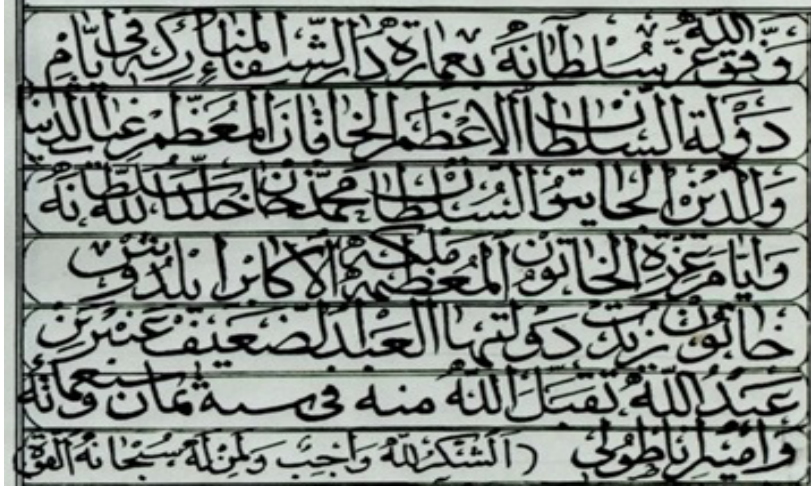 وفق الله عز سلطانه بعمارة دار الشفاء المباركة في ايام
دولة السلطان الاعظم الخاقان المعظم غياث الدنيا
والدين الجايتو السلطان محمد خان خلد الله سلطانه
وايام عزة الخاتون المعظمة ملكة الاكابر ايلدوش
خاتون زيدت دولتها العبد الضعيف عنبر بن
عبد الله تقبل الله منه في سنة ثمان وسبعمائة
وامير اناطولي (الشكر لله واجب ولمن له سبحانه القوة)